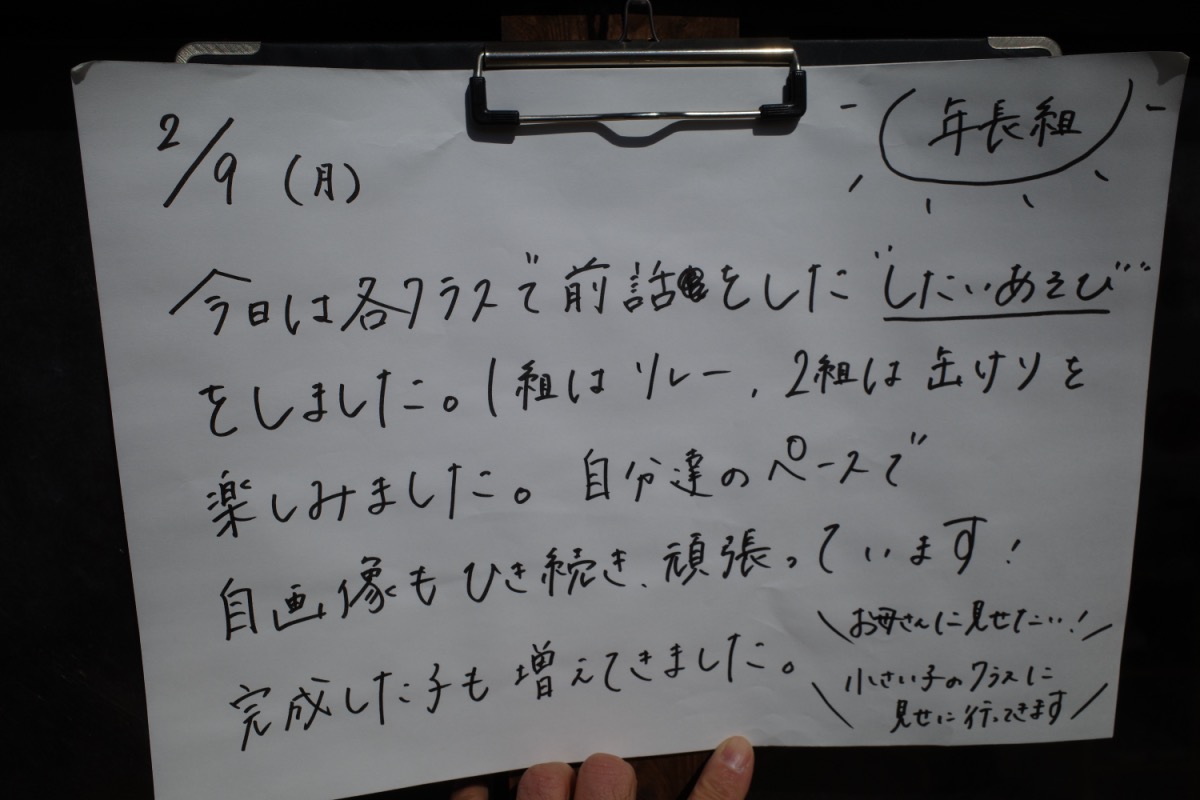 2/9 (月)
年長組
今日は各クラスで前話をした"したいあそび"
をしました。1組はリレー、2組は缶けりを
楽しみました。自分達のペースで
自画像もひき続き、頑張っています!
完成した子も増えてきました。
お母さんに見せたい!
小さい子のクラスに
見せに行ってきます